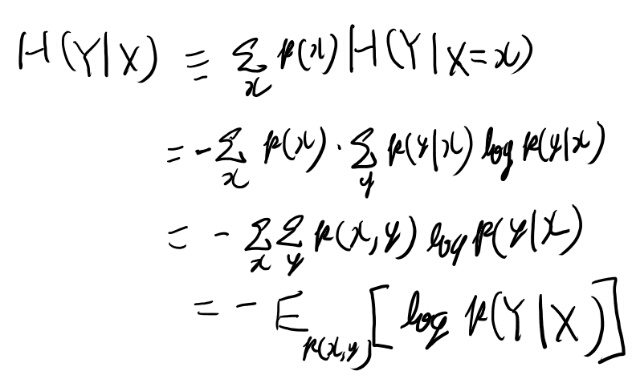 H(Y|X) ≡ ∑_x p(x) H(Y|X=x)
= -∑_x p(x) · ∑_y p(y|x) log p(y|x)
= - ∑_x ∑_y p(x,y) log p(y|x)
= - E_{p(x,y)} [log p(Y|X)]